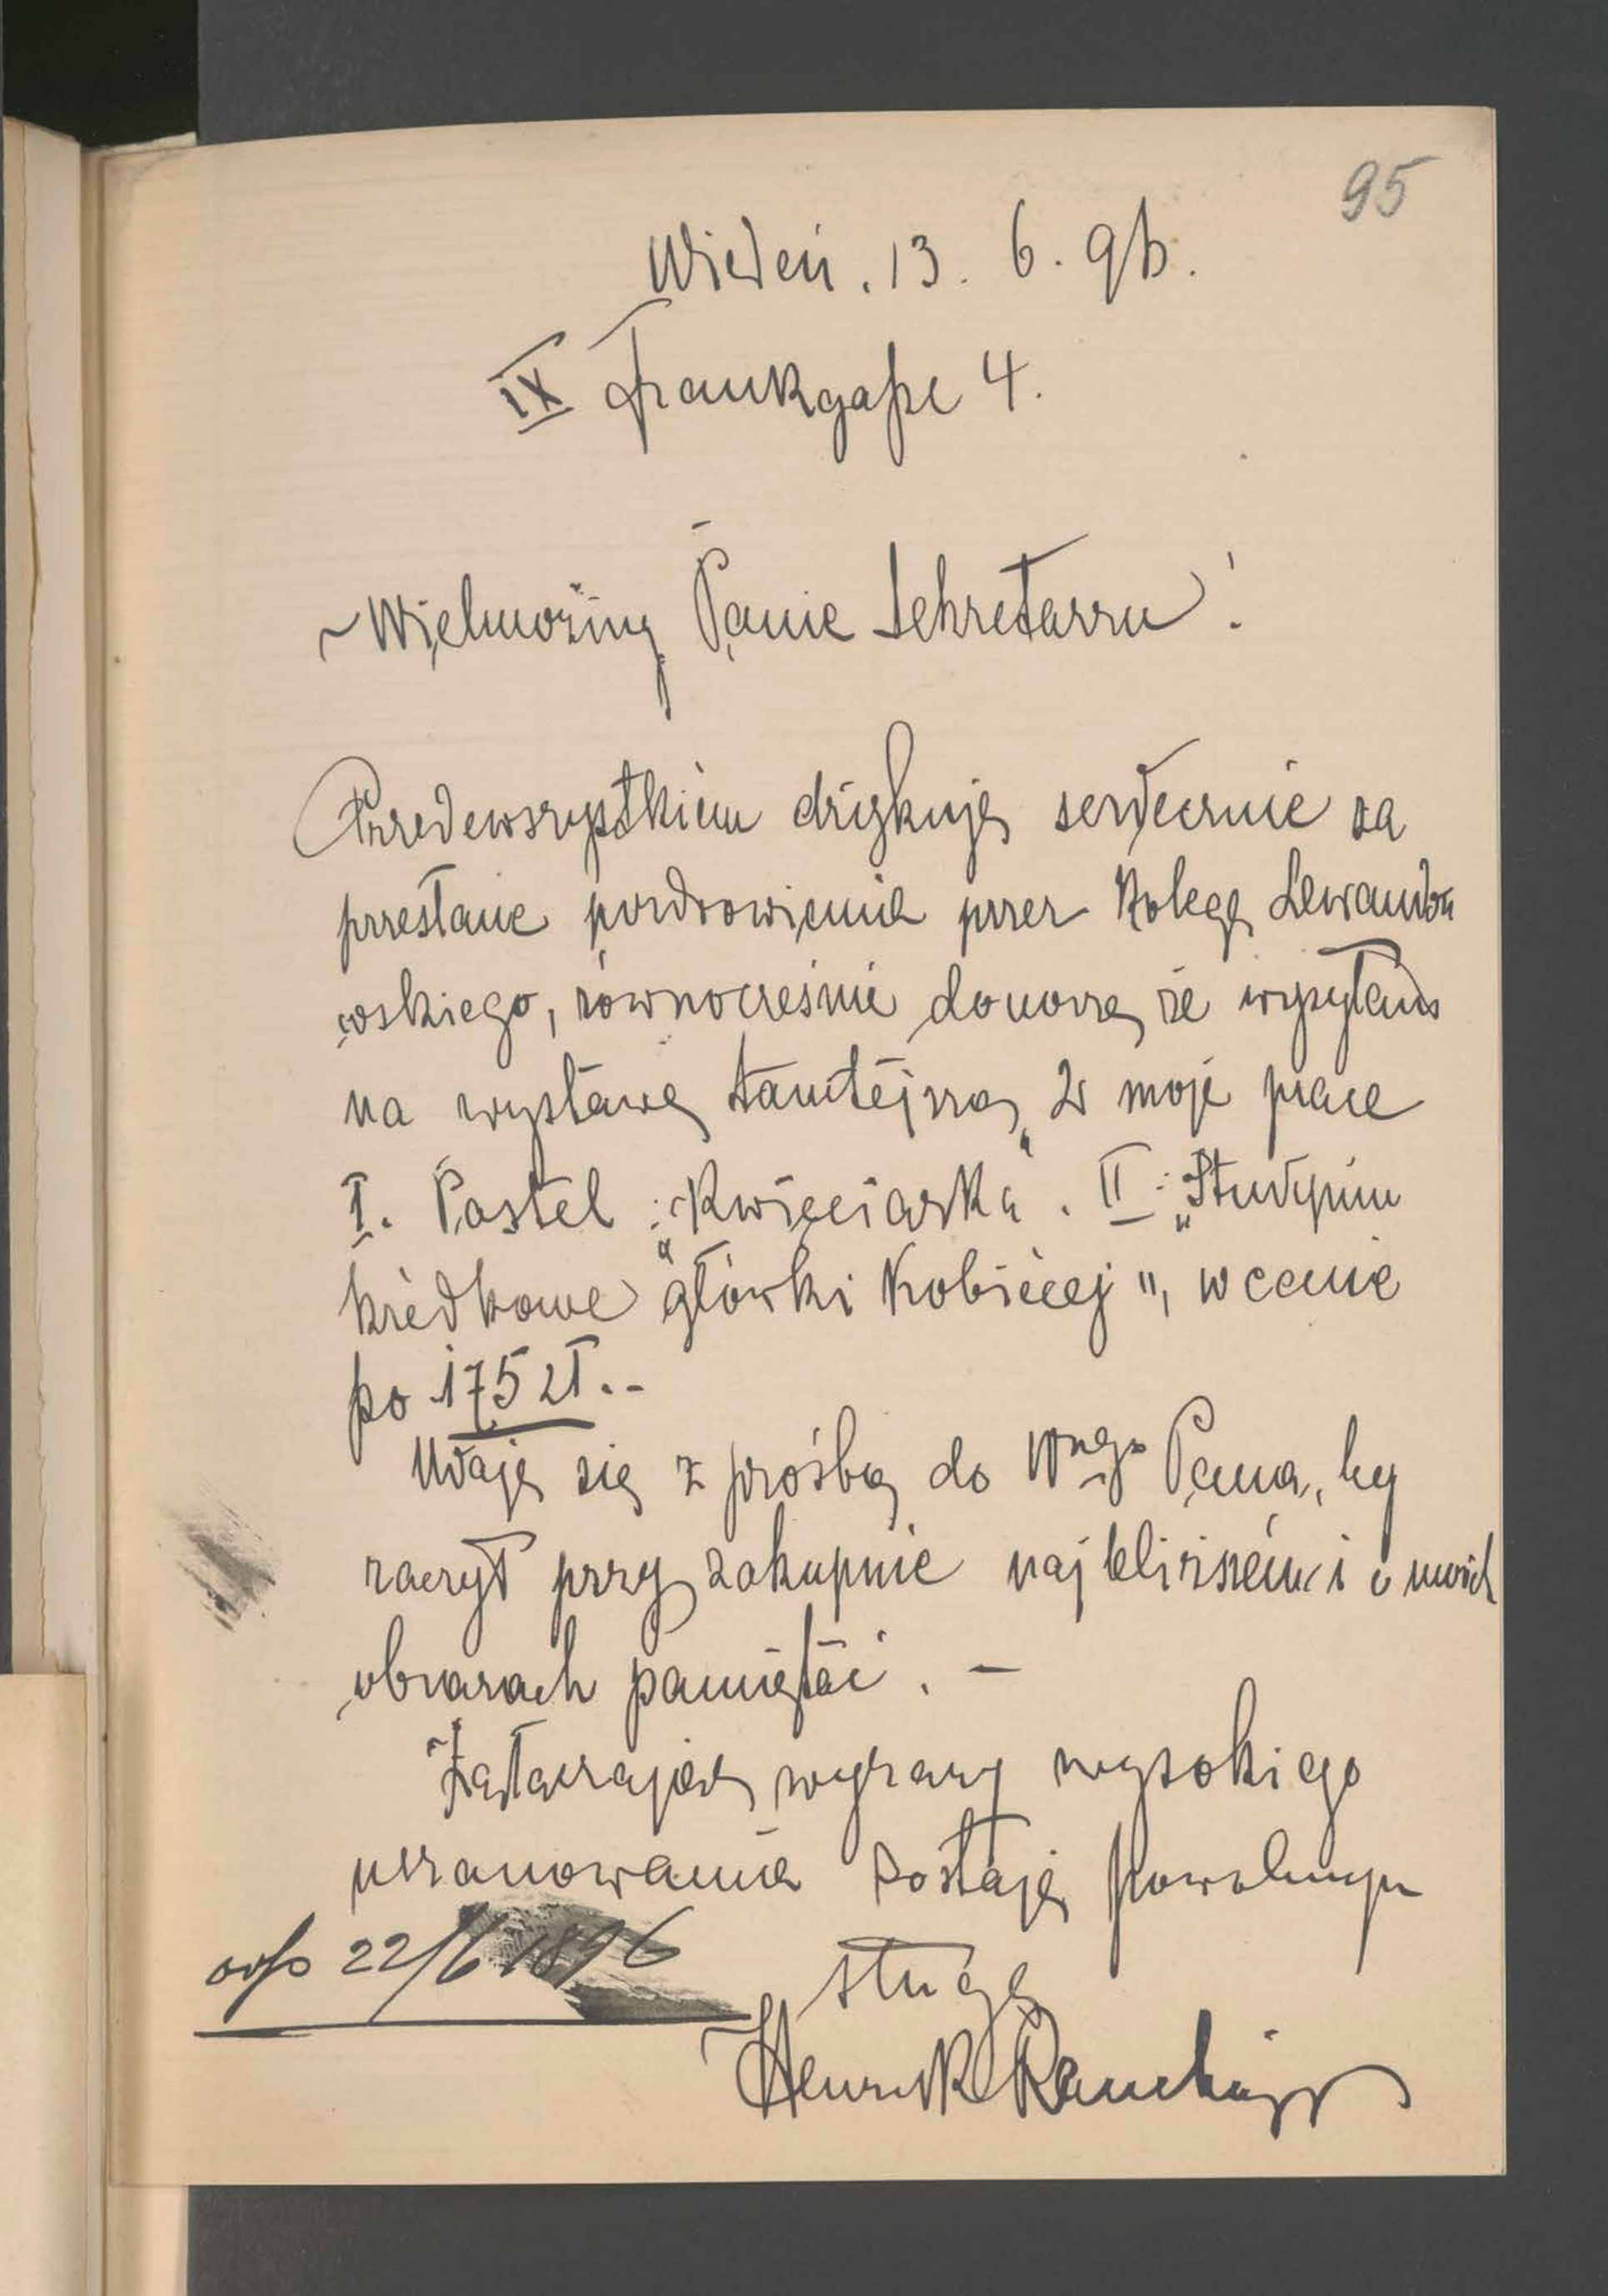 95
Wiedeń. 13. 6. 96.
IX Frankgaße 4.
Wielmożny Panie Sekretarzu!
Przedewszystkiém dziękuję serdecznie za
przesłane pozdrowienie przez Kolegę Lewandow
wskiego, równocześnie donoszę że wysyłam
na wystawę tamtejszą 2 moje prace
I. Pastel: „Kwieciarka". II: „Studyum
krédkowe „główki kobiécej", w cenie
po 175 zł.-
Udaję się z prośbą do Wnego Pana, by
raczył przy zakupnie najbliższém i o moich
obrazach pamiętać. –
Załączając wyrazy wysokiego
uszanowania zostaję powolnym
sługą
Henryk Rauchinger
odp 22/6 1896